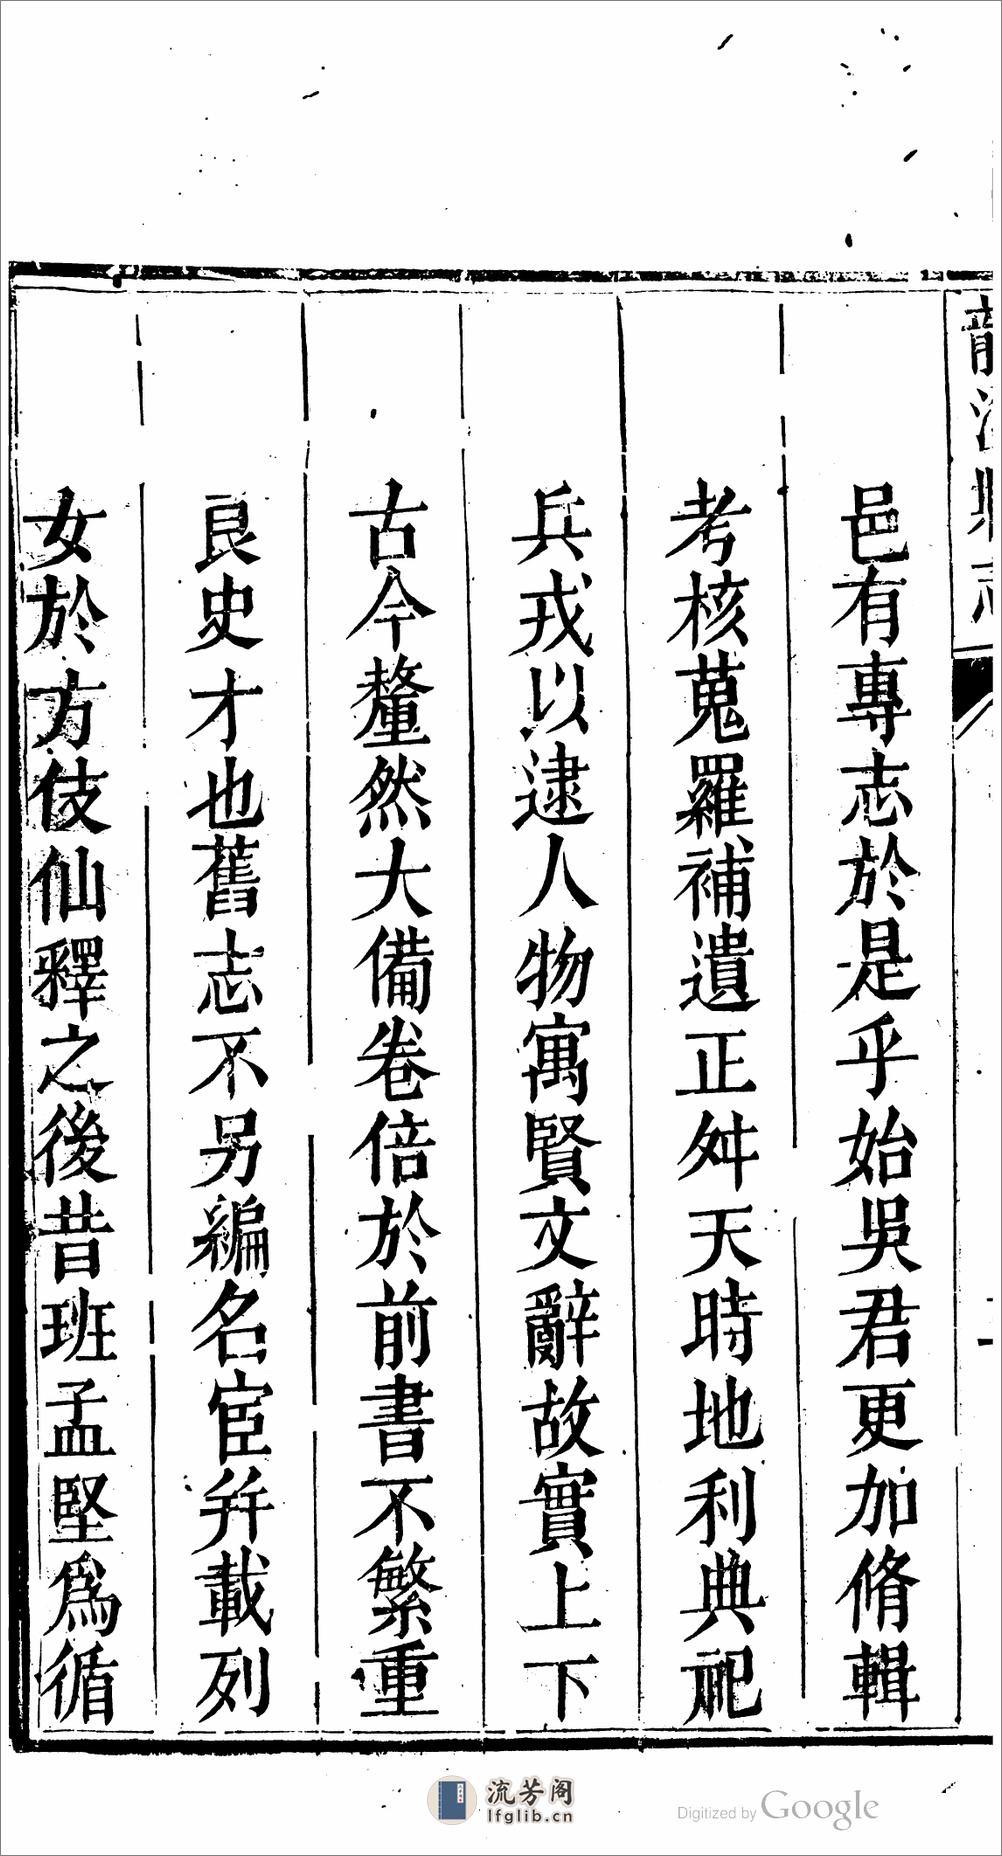 龍溪縣志
邑有專志於是乎始吳君更加脩輯
考核蒐羅補遺正舛天時地利典祀
兵戎以逮人物寓賢文辭故實上下
古今釐然大備卷倍於前書不繁重
良史才也舊志不另編名宦并載列
女於方伎仙釋之後昔班孟堅為循
流芳阁
lfglib.cn
Digitized by Google